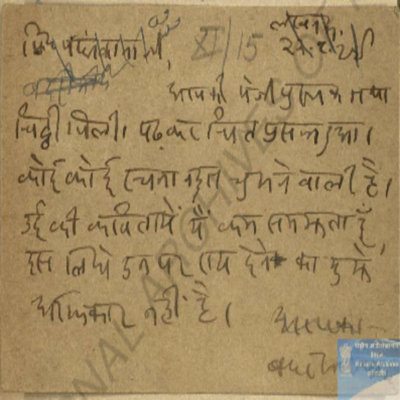 XI/15
आपकी भेजी पुस्तक तथा
चिट्ठी मिली। पढ़कर चित्त प्रसन्न हुआ।
कोई कोई रचना बहुत चुभने वाली है।
उर्दू की कवितायें मैं कम समझता हूँ,
इस लिये उन पर राय देने का मुझे
अधिकार नहीं है।
आपका